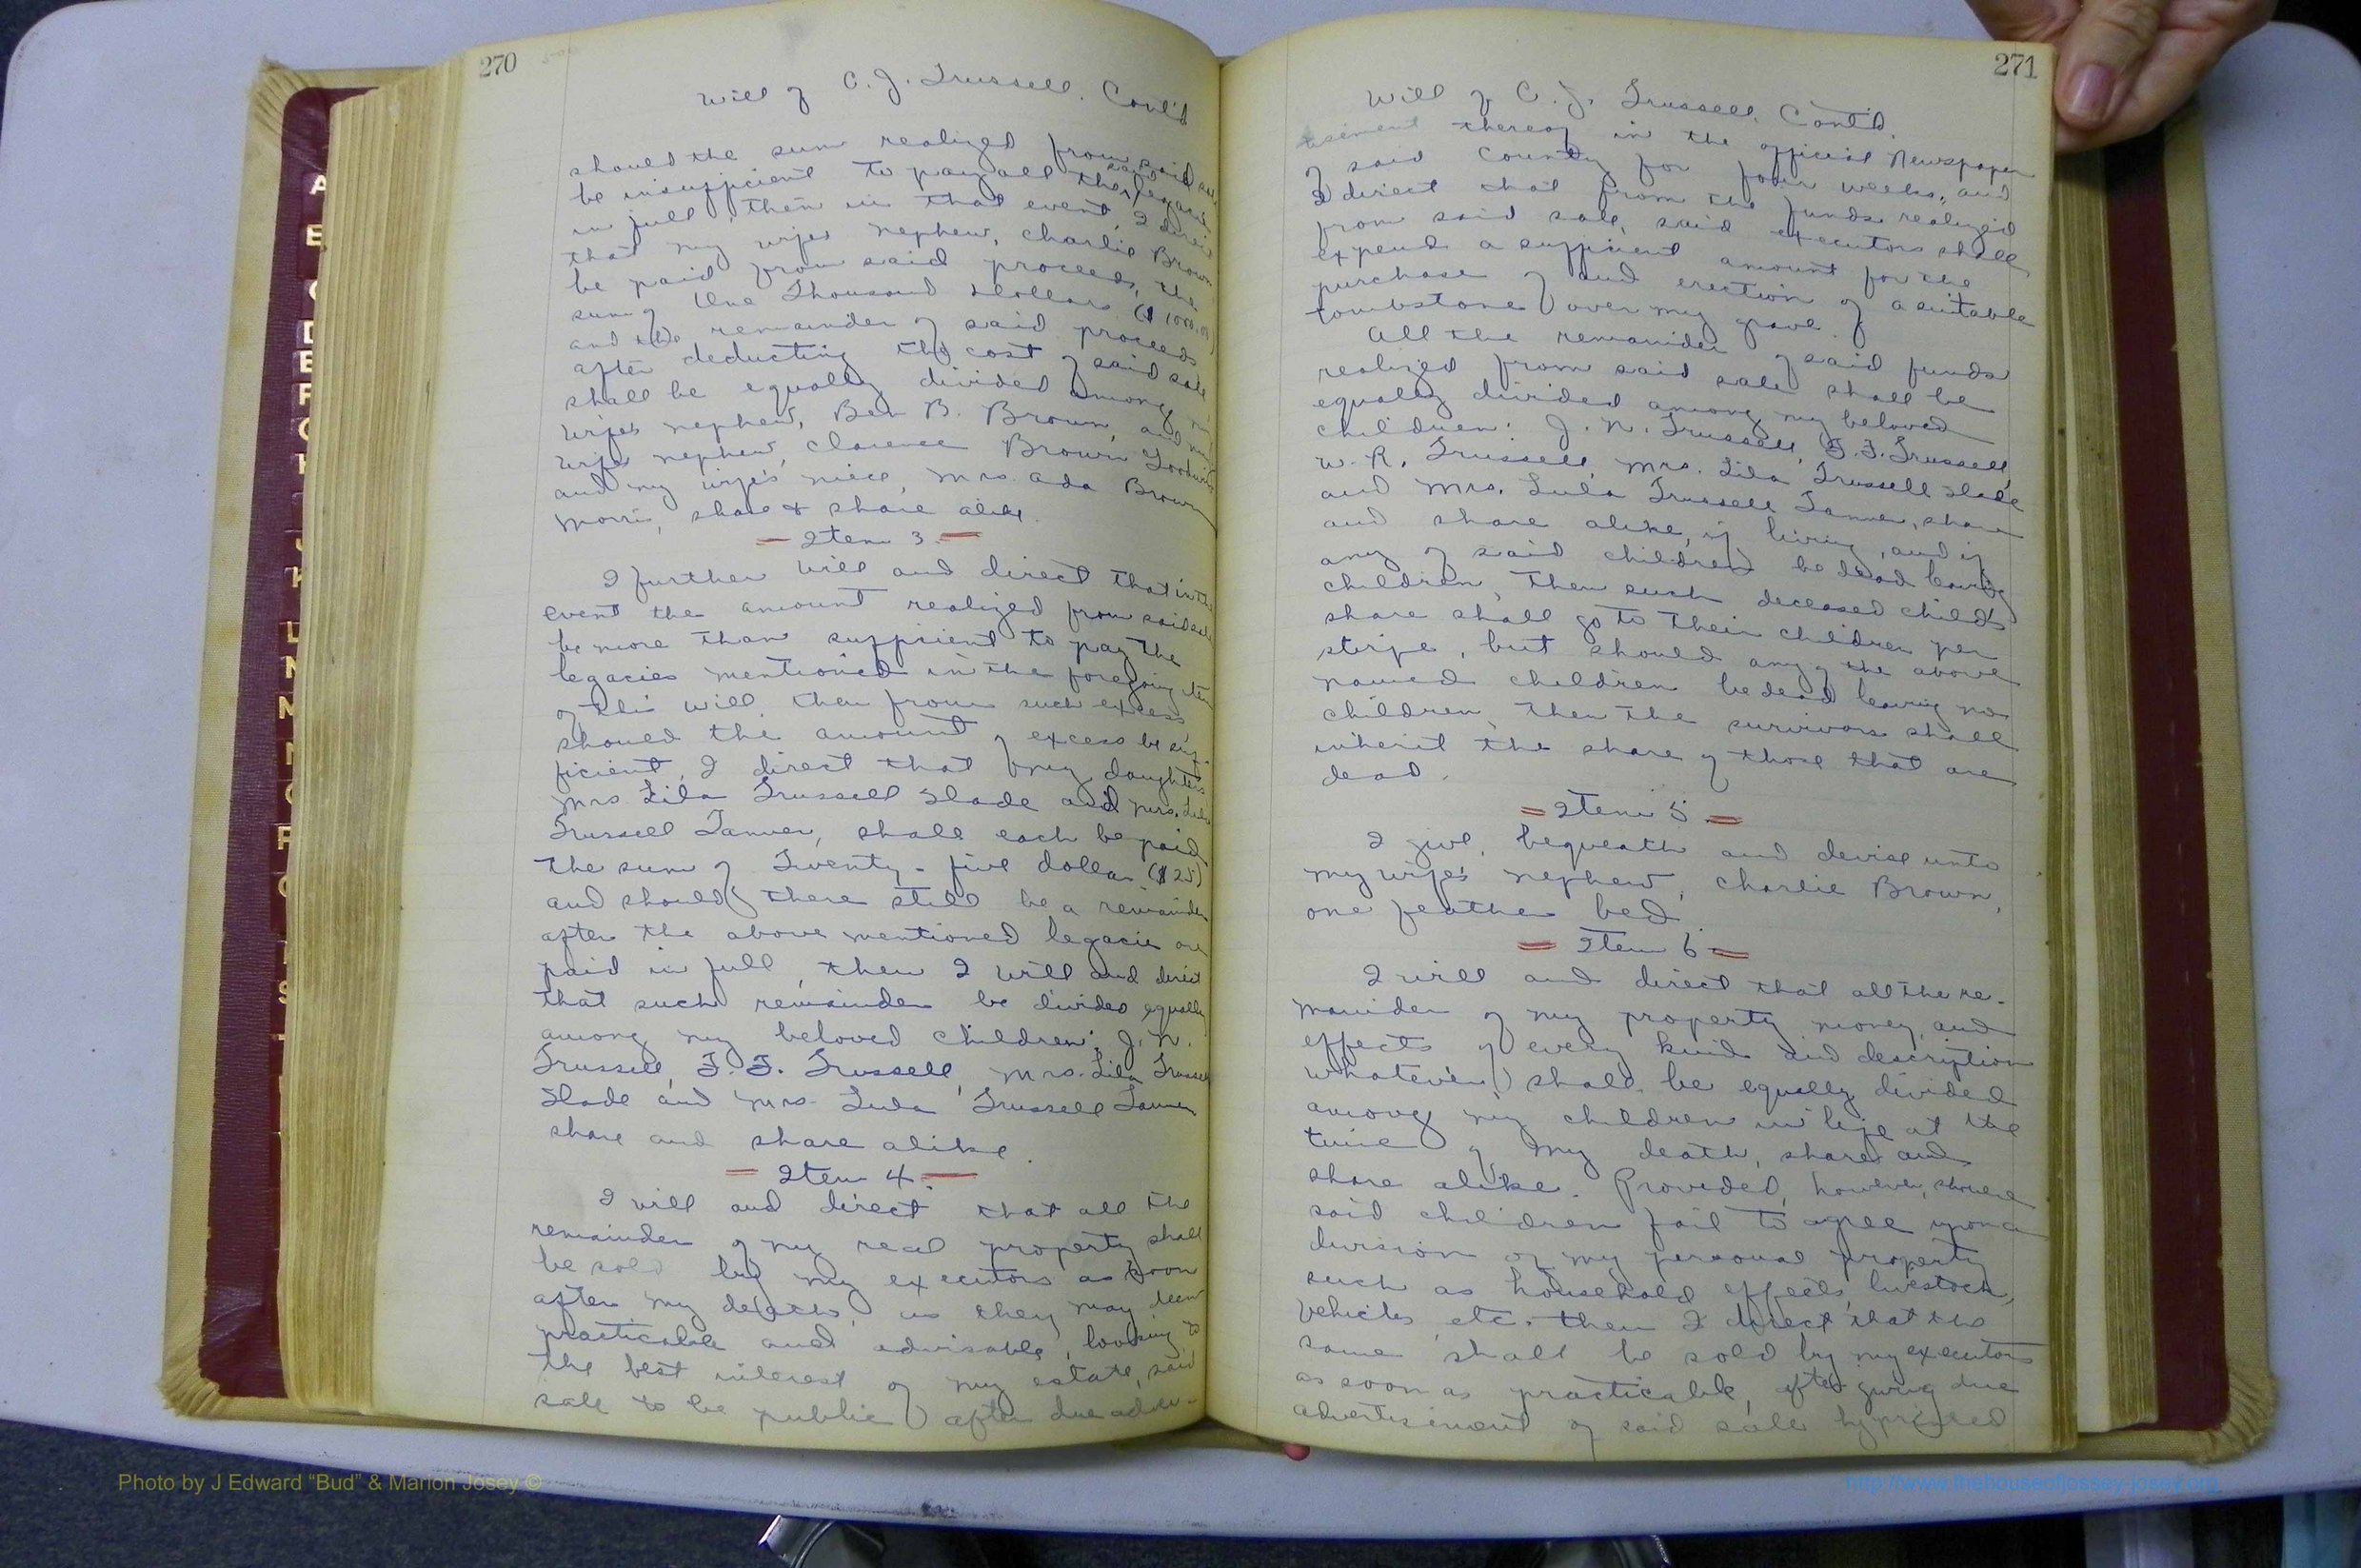 270
Will of C. J. Trussell. Cont'd
should the sum realized from said
be insufficient to pay all the said legacies
in full, then in that event, I direct
that my wife's nephew, Charlie Brown
be paid from said proceeds, the
sum of One Thousand Dollars ($1000.00)
and the remainder of said proceeds
after deducting the cost of said sale
shall be equally divided among my
wife's nephew, Ben B. Brown, and my
wife's nephew, Clarence Brown
and my wife's niece, Mrs. Ada Brown
Morris, share & share alike.
Item 3.
I further will and direct that in the
event the amount realized from said sale
be more than sufficient to pay the
legacies mentioned in the foregoing item
of this will, then from such excess
should the amount of excess be suf-
ficient, I direct that my daughters
Mrs Lila Trussell Slade and Mrs. Lula
Trussell Tanner, shall each be paid
the sum of Twenty-five dollars ($25)
and should there still be a remainder
after the above mentioned legacies are
paid in full, then I will and direct
that such remainder be divided equally
among my beloved children: J. N.
Trussell, F. F. Trussell, Mrs. Lila Trussell
Slade and Mrs. Lula Trussell Tanner
share and share alike.
Item 4.
I will and direct that all the
remainder of my real property shall
be sold by my executors as soon
after my death, as they may deem
practicable and advisable, looking to
the best interest of my estate, said
sale to be public after due adver-
271
Will of C. J. Trussell, Cont'd.
tisement thereof in the official Newspaper
of said County for four weeks, and
I direct that from the funds realized
from said sale, said executors shall
expend a sufficient amount for the
purchase of and erection of a suitable
tombstone over my grave.
All the remainder of said funds
realized from said sale shall be
equally divided among my beloved
children: J. N. Trussell, F. F. Trussell,
W. R. Trussell, Mrs. Lila Trussell Slade
and Mrs. Lula Trussell Tanner, share
and share alike, if living, and if
any of said children be dead leaving
children, then such deceased child's
share shall go to their children per
stirpe, but should any of the above
named children be dead leaving no
children, then the survivors shall
inherit the share of those that are
dead.
Item 5
I give, bequeath and devise unto
my wife's nephew, Charlie Brown,
one feather bed.
Item 6
I will and direct that all the re-
mainder of my property, money, and
effects of every kind and description
whatever shall be equally divided
among my children in life at the
time of my death, share and
share alike. Provided, however, should
said children fail to agree upon a
division of my personal property
such as household effects, livestock,
vehicles etc. then I direct that the
same shall be sold by my executors
as soon as practicable, after giving due
advertisement of said sale by printed
Photo by J Edward “Bud” & Marion Josey ©
http://www.thehouseofjossey-josey.org